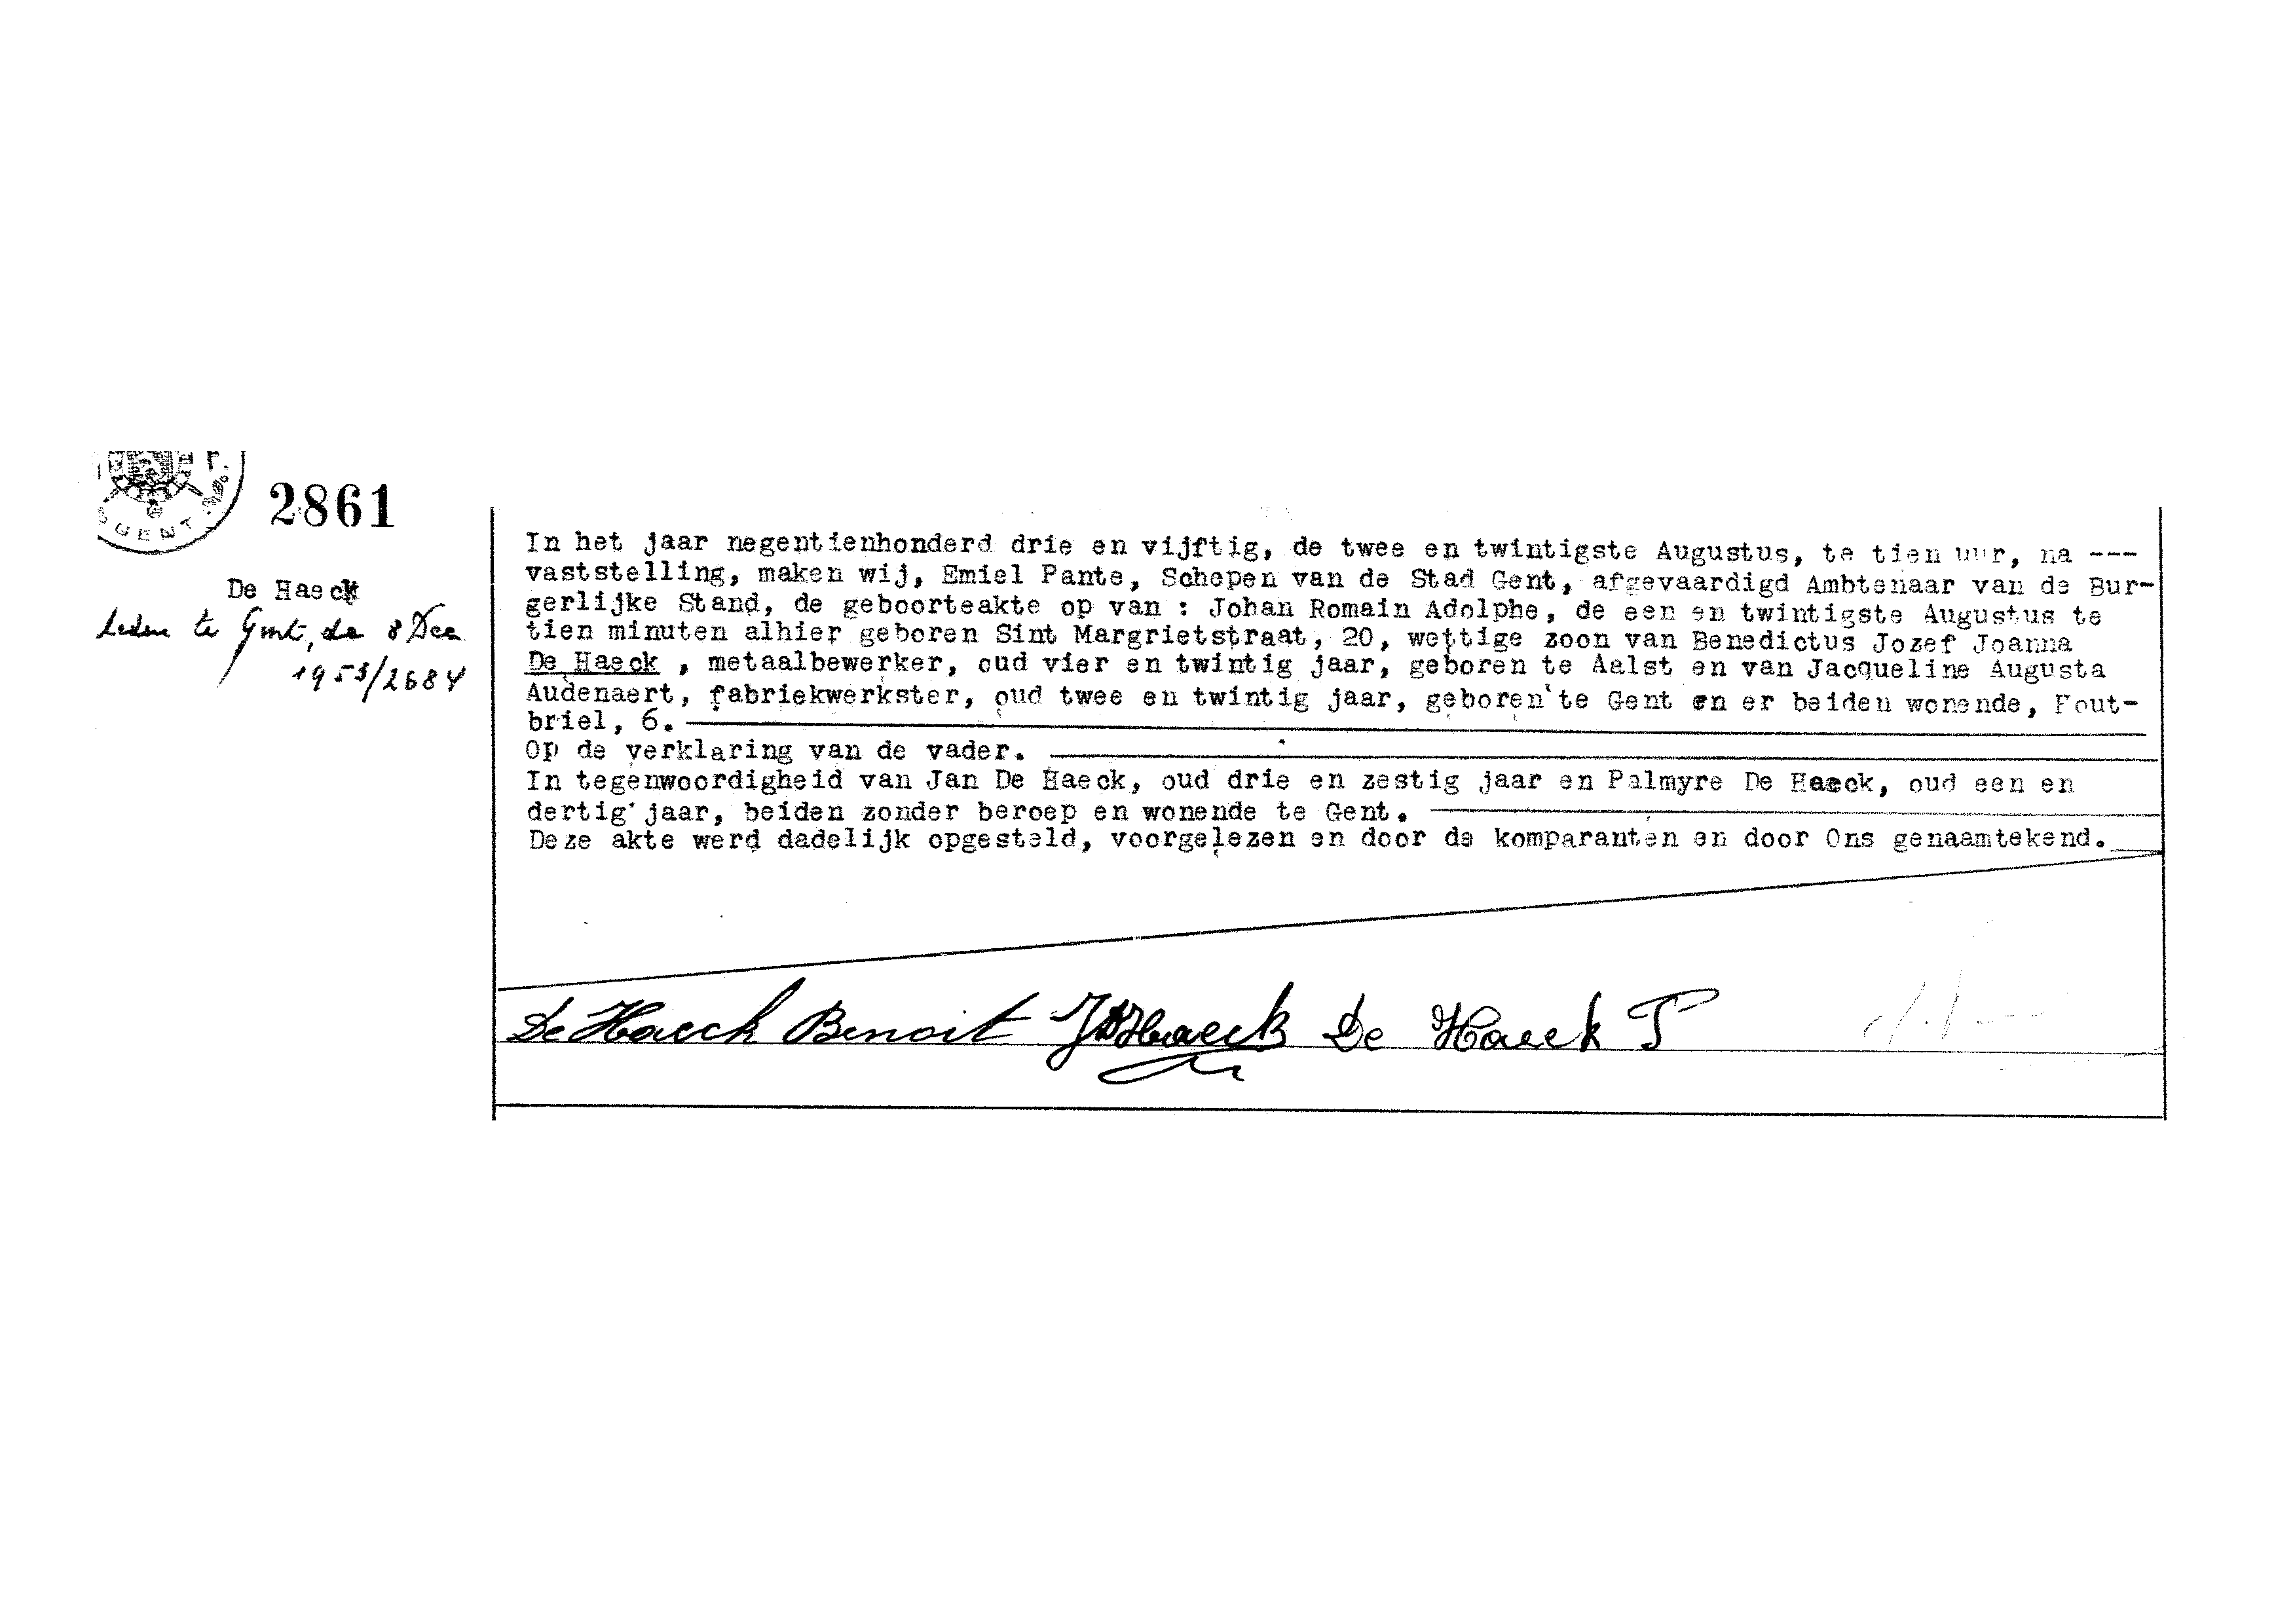 GENT
2861
De Haeck
te Gent, de 8 Dec
1953/2684
In het jaar negentienhonderd drie en vijftig, de twee en twintigste Augustus, te tien uur, na ---
vaststelling, maken wij, Emiel Pante, Schepen van de Stad Gent, afgevaardigd Ambtenaar van de Bur-
gerlijke Stand, de geboorteakte op van : Johan Romain Adolphe, de een en twintigste Augustus te
tien minuten alhier geboren Sint Margrietstraat, 20, wettige zoon van Benedictus Jozef Joanna
De Haeck , metaalbewerker, oud vier en twintig jaar, geboren te Aalst en van Jacqueline Augusta
Audenaert, fabriekwerkster, oud twee en twintig jaar, geboren te Gent en er beiden wonende, Fout-
briel, 6.
Op de verklaring van de vader.
In tegenwoordigheid van Jan De Haeck, oud drie en zestig jaar en Palmyre De Haeck, oud een en
dertig jaar, beiden zonder beroep en wonende te Gent.
Deze akte werd dadelijk opgesteld, voorgelezen en door de komparanten en door Ons genaamtekend.
De Haeck Benoit JDHaeck De Haeck P